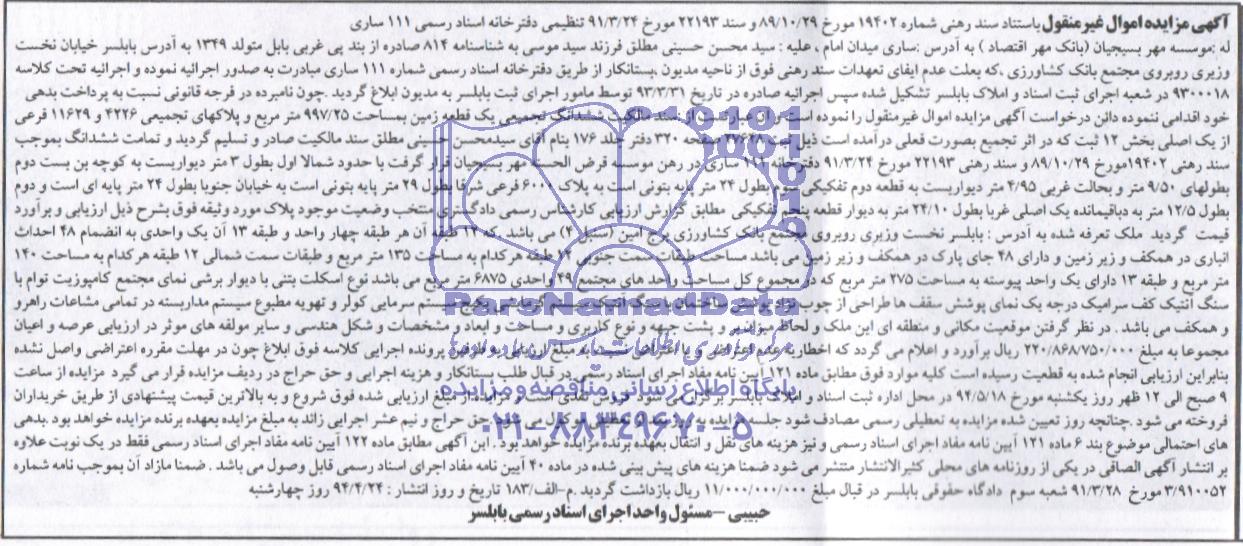 آگهی مزایده اموال غیر منقول باستناد سند رهنی شماره ۱۹۴۰۲ مورخ ۸۹/۱۰/۲۹ و سند ۲۲۱۹۳ مورخ ۹۱/۳/۲۴ تنظیمی دفترخانه اسناد رسمی ۱۱۱ ساری
له :موسسه مهر بسیجیان (بانک مهر اقتصاد ) به آدرس :ساری میدان امام ، علیه : سید محسن حسینی مطلق فرزند سید موسی به شناسنامه ۸۱۴ صادره از بند پی غربی بابل متولد ۱۳۴۹ به آدرس بابلسر خیابان نخست
وزیری روبروی مجتمع بانک کشاورزی ،که بعلت عدم ایفای تعهدات سند رهنی فوق از ناحیه مدیون ،بستانکار از طریق دفترخانه اسناد رسمی شماره ۱۱۱ ساری مبادرت به صدور اجرائیه نموده و اجرائیه تحت کلاسه
۹۳۰۰۰۱۸ در شعبه اجرای ثبت اسناد و املاک بابلسر تشکیل شده سپس اجرائیه صادره در تاریخ ۹۳/۳/۳۱ توسط مامور اجرای ثبت بابلسر به مدیون ابلاغ گردید .چون نامبرده در فرجه قانونی نسبت به پرداخت بدهی
خود اقدامی ننموده دائن درخواست آگهی مزایده اموال غیرمنقول را نموده است و آن عبارتست از سند مالکیت ششدانگ تجمیعی یک قطعه زمین بمساحت ۹۹۷/۲۵ متر مربع و پلاکهای تجمیعی ۴۲۲۶ و ۱۱۶۲۹ فرعی
از یک اصلی بخش ۱۲ ثبت که در اثر تجمیع بصورت فعلی درآمده است ذیل ثبت صفحه ۳۲۰ دفتر جلد ۱۷۶ بنام آقای سیدمحسن حسینی مطلق سند مالکیت صادر و تسلیم گردید و تمامت ششدانگ بموجب
سند رهنی ۱۹۴۰۲مورخ ۸۹/۱۰/۲۹ و سند رهنی ۲۲۱۹۳ مورخ ۹۱/۳/۲۴ دفترخانه ۱۱۱ ساری در رهن موسسه قرض الحسنه مهر بسیجیان قرار گرفت با حدود شمالا اول بطول ۳ متر دیواریست به کوچه بن بست دوم
بطولهای ۹/۵۰ متر و بحالت غربی ۴/۹۵ متر دیواریست به قطعه دوم تفکیکی سوم بطول ۲۴ متر پایه بتونی است به پلاک ۶۰۰۰ فرعی شرقا بطول ۲۹ متر پایه بتونی است به خیابان جنوبا بطول ۲۴ متر پایه ای است و دوم
بطول ۱۲/۵ متر به دباقیمانده یک اصلی غربا بطول ۲۴/۱۰ متر به دیوار قطعه پنجم تفکیکی مطابق گزارش ارزیابی کارشناس رسمی دادگستری منتخب وضعیت موجود پلاک مورد وثیقه فوق بشرح ذیل ارزیابی و برآورد
قیمت گردید ملک تعرفه شده به آدرس : بابلسر نخست وزیری روبروی مجتمع بانک کشاورزی برج امین (سیتل ۴) می باشد که ۱۲ طبقه آن هر طبقه چهار واحد و طبقه ۱۳ آن یک واحدی به انضمام ۴۸ احداث
انباری در همکف و زیر زمین و دارای ۴۸ جای پارک در همکف و زیر زمین می باشد مساحت طبقات سمت جنوبی ۱۲ طبقه هرکدام به مساحت ۱۳۵ متر مربع و طبقات سمت شمالی ۱۲ طبقه هرکدام به مساحت ۱۴۰
متر مربع و طبقه ۱۳ دارای یک واحد پیوسته به مساحت ۲۷۵ متر مربع که در مجموع کل مساحت واحد های مجتمع ۴۹ واحدی ۶۸۷۵ متر مربع می باشد نوع اسکلت بتنی با دیوار برشی نمای مجتمع کامپوزیت توام با
سنگ آنتیک کف سرامیک درجه یک نمای پوشش سقف ها طراحی از چوب نراد پوشش ساختمان با سنگ آنتیک سیستم گرمایشی پکیج سیستم سرمایی کولر و تهویه مطبوع سیستم مداربسته در تمامی مشاعات راهرو
و همکف می باشد . در نظر گرفتن موقعیت مکانی و منطقه ای این ملک و لحاظ میزان بر و پشت جبهه و نوع کاربری و مساحت و ابعاد و مشخصات و شکل هندسی و سایر مولفه های موثر در ارزیابی عرصه و اعیان
مجموعا به مبلغ ۲۲۰/۸۶۸/۷۵۰/۰۰۰ ریال برآورد و اعلام می گردد که اخطاریه عدم اعتراض و یا اعتراض نسبت به مبلغ ارزیابی به طرفین پرونده اجرایی کلاسه فوق ابلاغ چون در مهلت مقرره اعتراضی واصل نشده
بنابراین ارزیابی انجام شده به قطعیت رسیده است کلیه موارد فوق مطابق ماده ۱۲۱ آیین نامه مفاد اجرای اسناد رسمی در قبال طلب بستانکار و هزینه اجرایی و حق حراج در ردیف مزایده قرار می گیرد مزایده از ساعت
۹ صبح الی ۱۲ ظهر روز یکشنبه مورخ ۹۴/۵/۱۸ در محل اداره ثبت اسناد و املاک بابلسر برگزار می شود فروش نقدی است و مزایده از مبلغ ارزیابی شده فوق شروع و به بالاترین قیمت پیشنهادی از طریق خریداران
فروخته می شود .چنانچه روز تعیین شده مزایده به تعطیلی رسمی مصادف شود جلسه حق حراج و نیم عشر اجرایی زائد به مبلغ مزایده بعهده برنده مزایده خواهد بود .بدهی
های احتمالی موضوع بند ۶ ماده ۱۲۱ آیین نامه مفاد اجرای اسناد رسمی و نیز هزینه های نقل و انتقال بعهده برنده مزایده خواهد بود . این آگهی مطابق ماده ۱۲۲ آیین نامه مفاد اجرای اسناد رسمی فقط در یک نوبت علاوه
بر انتشار آگهی الصاقی در یکی از روزنامه های محلی کثیرالانتشار منتشر می شود ضمنا هزینه های پیش بینی شده در ماده ۴۰ آیین نامه مفاد اجرای اسناد رسمی قابل وصول می باشد . ضمنا مازاد آن بموجب نامه شماره
۳/۹۱۰۰۵۲ مورخ ۹۱/۳/۲۸ شعبه سوم دادگاه حقوقی بابلسر در قبال مبلغ ۱۱/۰۰۰/۰۰۰/۰۰۰ ریال بازداشت گردید .م-الف/۱۸۳ تاریخ و روز انتشار : ۹۴/۴/۲۴ روز چهارشنبه
حبیبی -مسئول واحد اجرای اسناد رسمی بابلسر
ParsNamadData
پایگاه اطلاع رسانی مناقصه و مزایده
۰۲۱-۸۸۳۴۹۶۷۰-۵